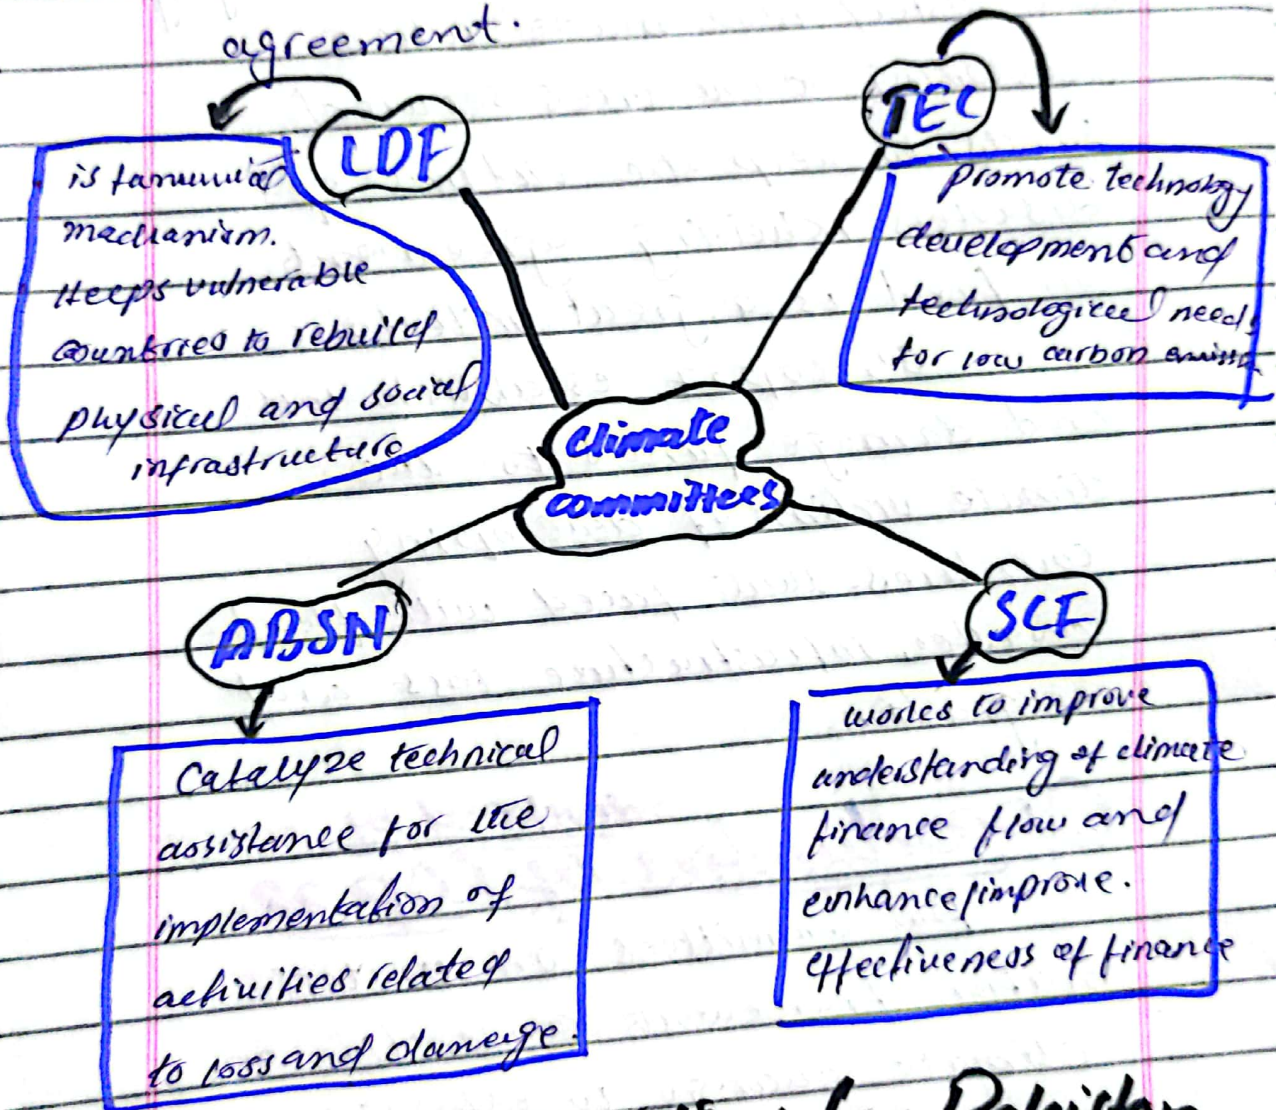 agreement.
LDF
is
mechanism.
Heeps vulnerable
countries to rebuild
physical and social
infrastructure
TEC
promote technology
development and
technological needs
for low carbon emission
climate
committees
ABSN
Catalyze technical
assistance for the
implementation of
activities related
to loss and damage.
SCF
works to improve
understanding of climate
finance flow and
enhance/improve.
effectiveness of finance
Pakistan